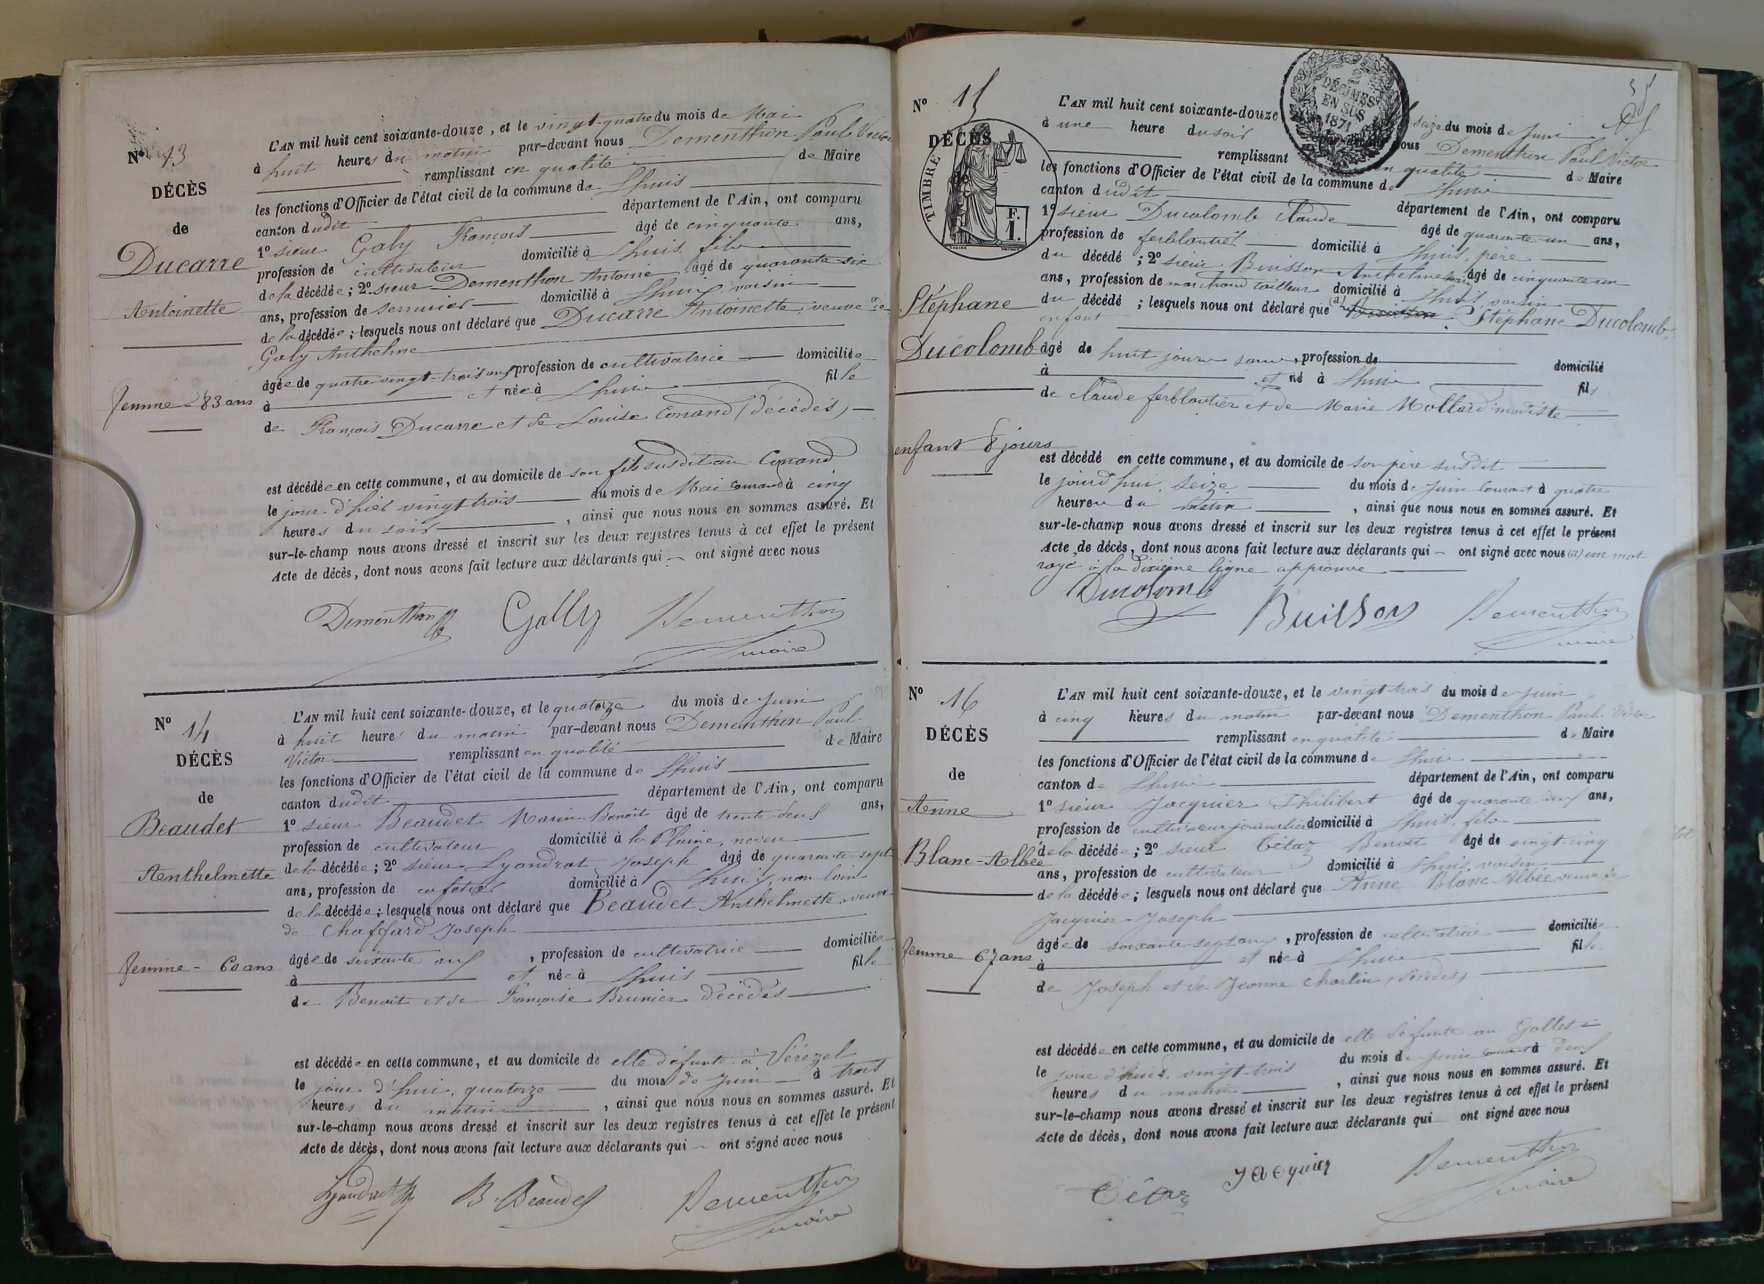 N° 13
DÉCÈS
de
Ducarre
Antoinette
femme 83 ans
L'AN mil huit cent soixante-douze, et le vingt-quatre du mois de Mai
à huit heures du matin par-devant nous Dementhon Paul Victor
remplissant en qualité de Maire
les fonctions d'Officier de l'état civil de la commune de Lhuis
canton dudit département de l'Ain, ont comparu
1° sieur Galy François âgé de cinquante ans,
profession de cultivateur domicilié à Lhuis, fils
de la décédée; 2° sieur Dementhon Antoine âgé de quarante six
ans, profession de serrurier domicilié à Lhuis voisin
de la décédée; lesquels nous ont déclaré que Ducarre Antoinette, veuve de
Galy Anthelme
âgée de quatre vingt trois ans profession de cultivatrice domiciliée
à et née à Lhuis fille
de François Ducarre et de Louise Conand (décédés)
est décédée en cette commune, et au domicile de son fils susdit au Conand
le jour d'hier vingt trois du mois de Mai courant à cinq
heures du soir, ainsi que nous nous en sommes assuré. Et
sur-le-champ nous avons dressé et inscrit sur les deux registres tenus à cet effet le présent
Acte de décès, dont nous avons fait lecture aux déclarants qui ont signé avec nous
Dementhon Gally Dementhon
maire
N° 14
DÉCÈS
de
Beaudet
Anthelmette
femme - 60 ans
L'AN mil huit cent soixante-douze, et le quatorze du mois de Juin
à huit heures du matin par-devant nous Dementhon Paul
Victor remplissant en qualité de Maire
les fonctions d'Officier de l'état civil de la commune de Lhuis
canton dudit département de l'Ain, ont comparu
1° sieur Beaudet Marin Benoit âgé de trente deux ans,
profession de cultivateur domicilié à la Plaine, neveu
de la décédée; 2° sieur Lyandrat Joseph âgé de quarante sept
ans, profession de domicilié à Lhuis, non loin
de la décédée; lesquels nous ont déclaré que Beaudet Anthelmette veuve
de Chaffard Joseph
âgée de soixante ans, profession de cultivatrice domiciliée
à et née à Lhuis fille
de Benoit et de Françoise Brunier décédés
est décédée en cette commune, et au domicile de elle défunte à Sérézel
le jour d'hui, quatorze du mois de Juin à trois
heures du matin, ainsi que nous nous en sommes assuré. Et
sur-le-champ nous avons dressé et inscrit sur les deux registres tenus à cet effet le présent
Acte de décès, dont nous avons fait lecture aux déclarants qui ont signé avec nous
Lyandrat B. Beaudet Dementhon
maire
N° 15
DÉCÈS
de
Stéphane
Ducolomb
enfant 8 jours
TIMBRE
F.
1.
2
DÉCIMES
EN SUS
1871
L'AN mil huit cent soixante-douze seize du mois de Juin
à une heure du soir par-devant nous Dementhon Paul Victor
remplissant en qualité de Maire
les fonctions d'Officier de l'état civil de la commune de Lhuis
canton dudit département de l'Ain, ont comparu
1° sieur Ducolomb Claude âgé de quarante un ans,
profession de ferblantier domicilié à Lhuis, père
du décédé; 2° sieur Buisson Anthelme âgé de cinquante un
ans, profession de marchand tailleur domicilié à Lhuis, voisin
du décédé; lesquels nous ont déclaré que (a) Stéphane Ducolomb,
enfant
âgé de huit jours, profession de domicilié
à et né à Lhuis fils
de Claude ferblantier et de Marie Mollard modiste
est décédé en cette commune, et au domicile de son père susdit
le jourd'hui seize du mois de Juin courant à quatre
heures du matin, ainsi que nous nous en sommes assuré. Et
sur-le-champ nous avons dressé et inscrit sur les deux registres tenus à cet effet le présent
Acte de décès, dont nous avons fait lecture aux déclarants qui ont signé avec nous (a) un mot
rayé à la dixième ligne approuvé
Ducolomb Buisson Dementhon
maire
N° 16
DÉCÈS
de
Anne
Blanc-Albée
femme 67 ans
L'AN mil huit cent soixante-douze, et le vingt trois du mois de Juin
à cinq heures du matin par-devant nous Dementhon Paul Victor
remplissant en qualité de Maire
les fonctions d'Officier de l'état civil de la commune de Lhuis
canton de Lhuis département de l'Ain, ont comparu
1° sieur Jacquier Philibert âgé de quarante ans,
profession de cultivateur journalier domicilié à Lhuis, fils
de la décédée; 2° sieur Cétaz Benoit âgé de vingt cinq
ans, profession de cultivateur domicilié à Lhuis, voisin
de la décédée; lesquels nous ont déclaré que Anne Blanc-Albée veuve de
Jacquier Joseph
âgée de soixante sept ans, profession de cultivatrice domiciliée
à et née à Lhuis fille
de Joseph et de Jeanne Charlin, décédés,
est décédée en cette commune, et au domicile de elle défunte au Gallet
le jour d'hui vingt trois du mois de Juin courant à deux
heures du matin, ainsi que nous nous en sommes assuré. Et
sur-le-champ nous avons dressé et inscrit sur les deux registres tenus à cet effet le présent
Acte de décès, dont nous avons fait lecture aux déclarants qui ont signé avec nous
Cétaz Jacquier Dementhon
maire